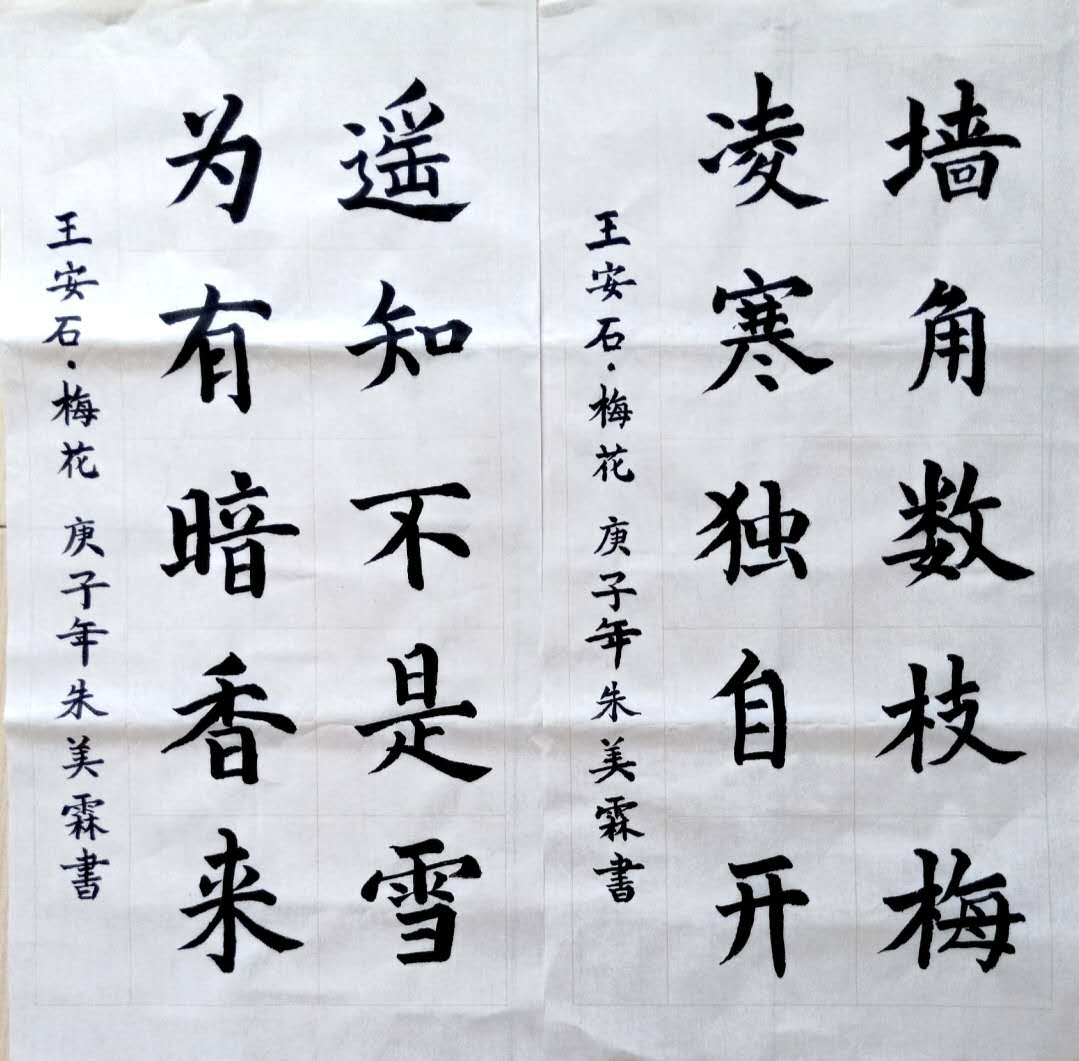 墙角数枝梅
凌寒独自开
王安石·梅花 庚子年朱美霖書
遥知不是雪
为有暗香来
王安石·梅花 庚子年朱美霖書